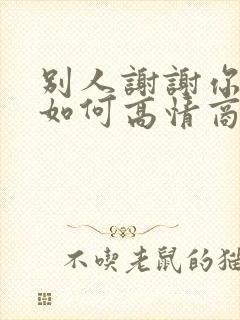 別人謝謝你
如何高情商
不喫老鼠的猫